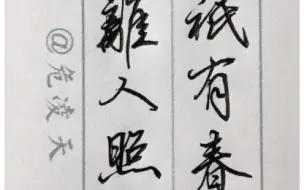 祇有春
離人照
@危凌天